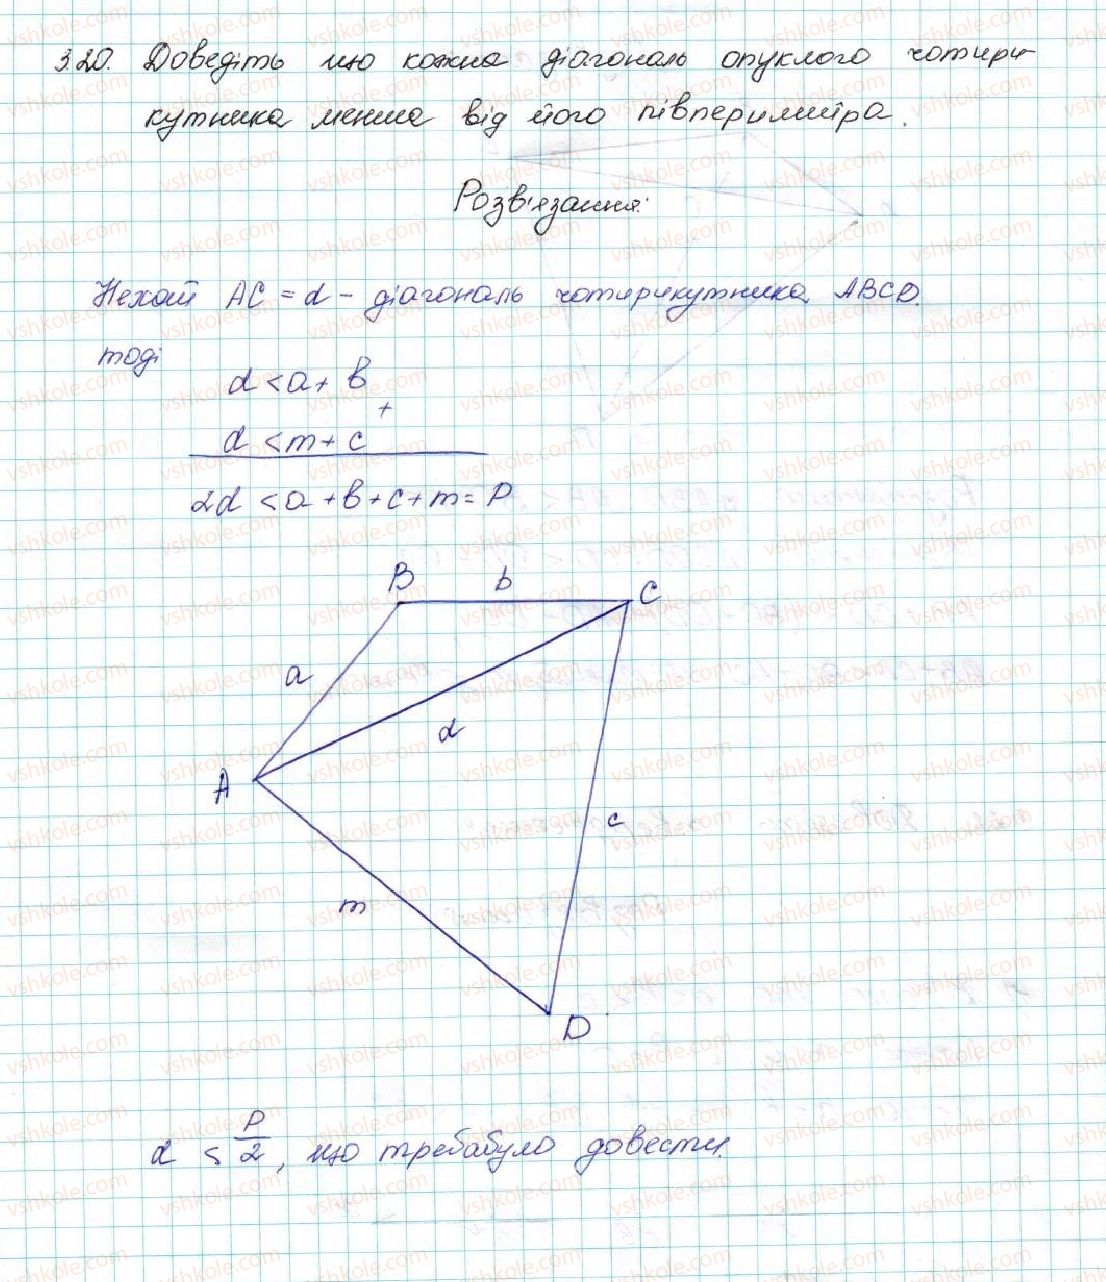 320. Доведіть що кожна діагональ опуклого чотири-
кутника менша від його півпериметра.
Розв'язання:
Нехай AC = d - діагональ чотирикутника ABCD.
тоді
d < a + b
+
d < m + c
2d < a + b + c + m = P
B b C
a
d
A
c
m
D
d < P/2, що требабуло довести.